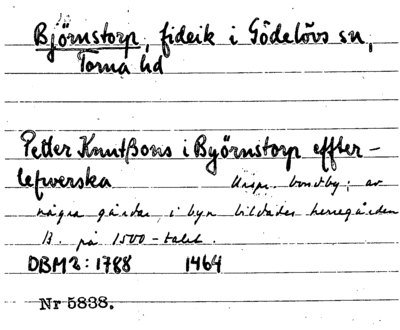 Björnstorp, fideik i Gödelövs sn,
Torna hd
Petter Knutßons i Byörnstorp effter-
lefwerska Urspr. bondby; av
några gårdar i byn bildades herregården
B. på 1500-talet.
DBM2: 1788 1464
Nr 5838.